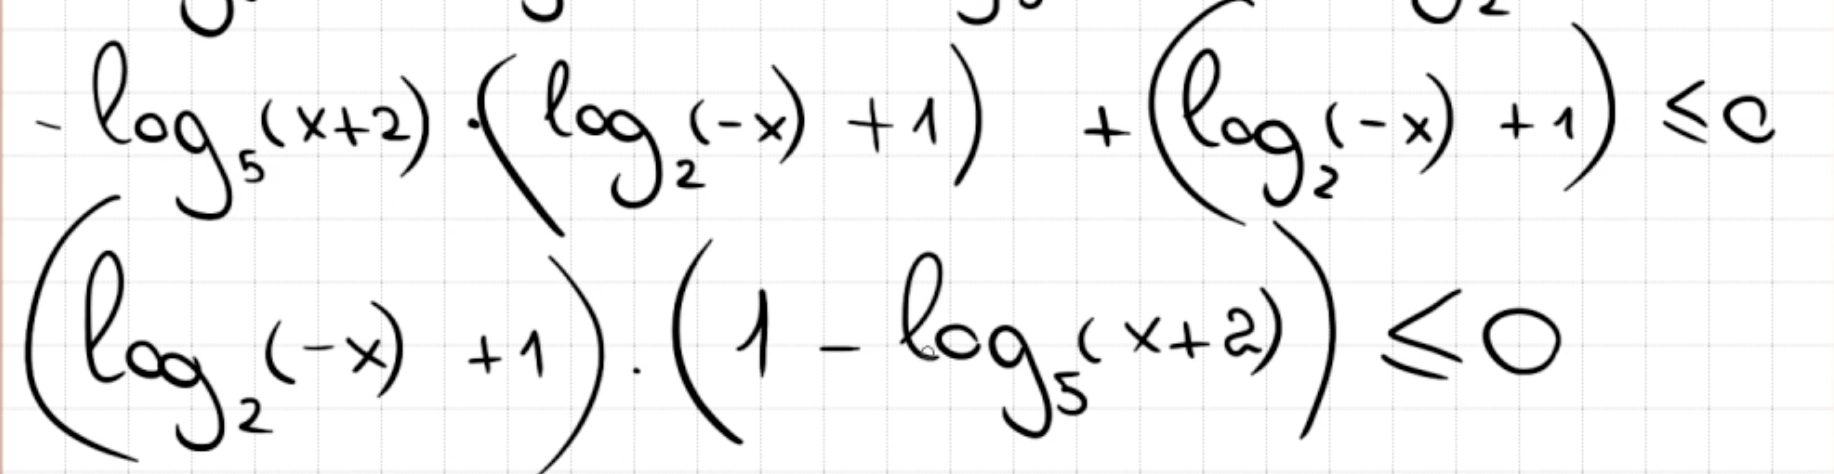 - log₅(x+2) · (log₂(-x) +1) + (log₂(-x) +1) ≤ 0
(log₂(-x) +1) · (1 - log₅(x+2)) ≤ 0